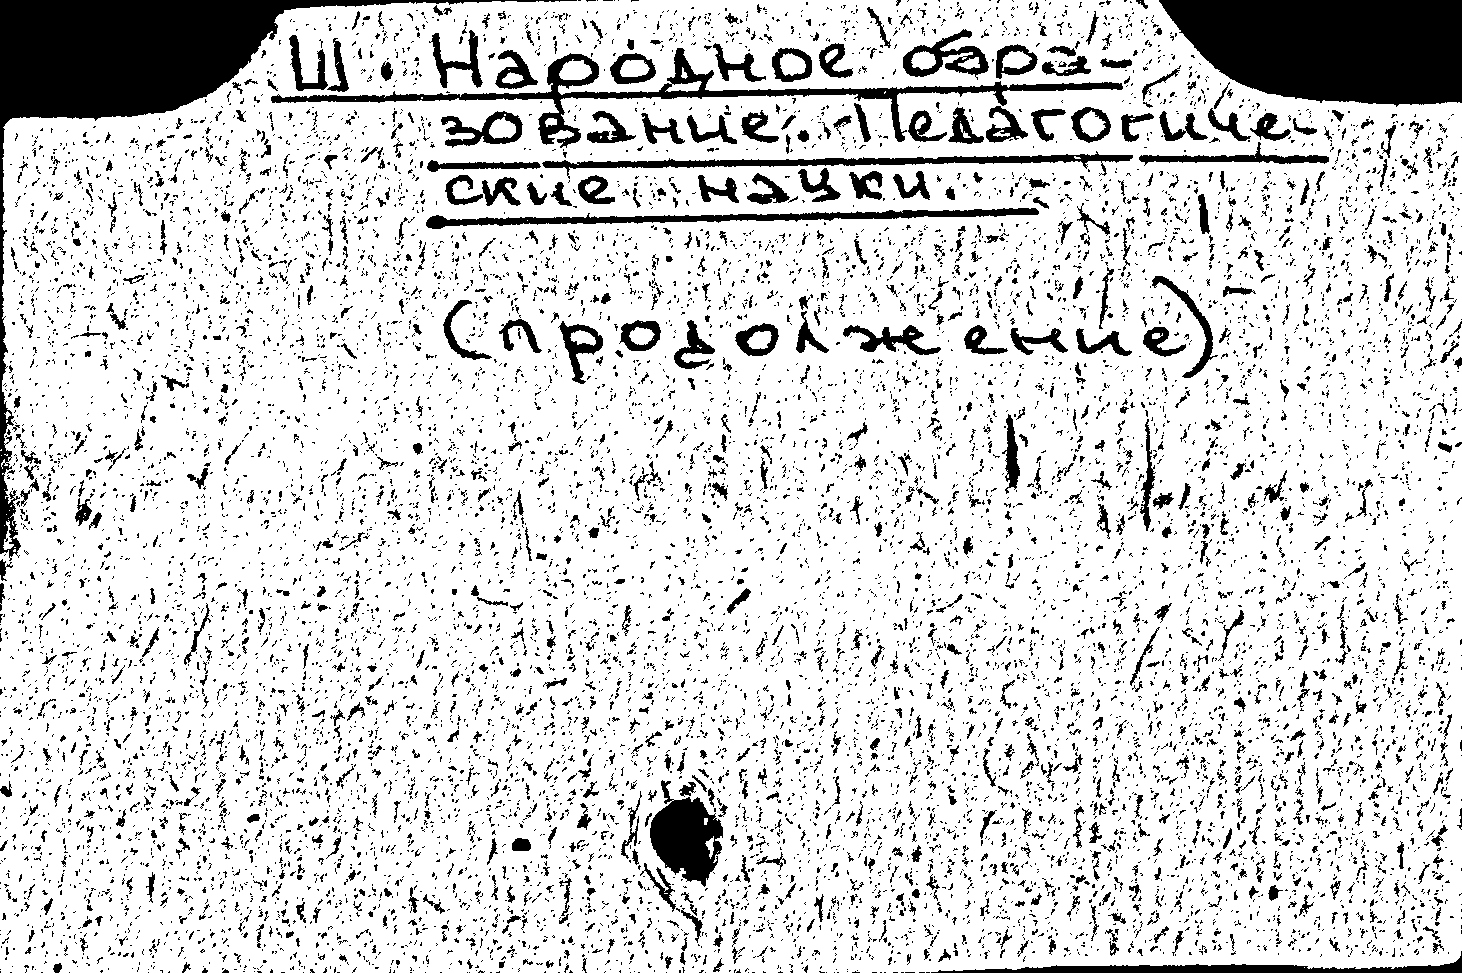 Ш. Народное обра-
зование. Педагогиче-
ские науки.
(продолжение)